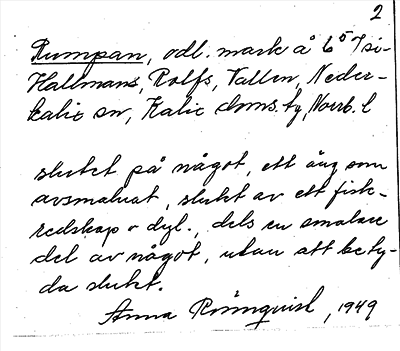 2
Rumpan, odl. mark å 6⁵⁷ si-
Hallmans, Rolfs, Vallen, Neder-
kalix sn, Kalix doms. fg, Norrb. l
slutet på något, ett äng som
avsmalnat, slutet av ett fisk-
redskap o dyl., dels en smalare
del av något, utan att bety-
da slutet.
Anna Rönnqvist, 1949